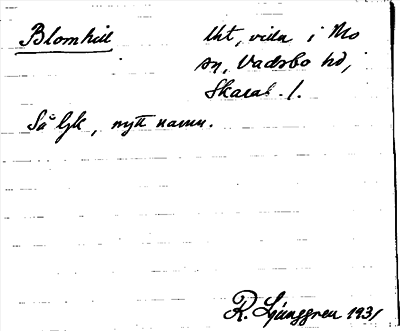 Blomhill lht, villa i Mo
sn, Vadsbo hd,
Skarab. l.
Så ljk, nytt namn.
R. Ljunggren 1931